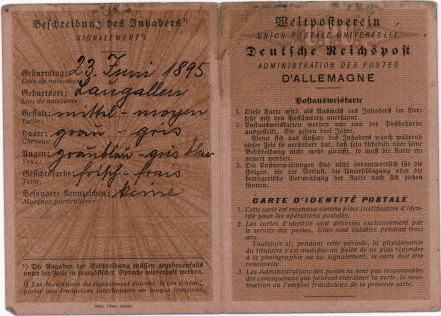 Beschreibung des Inhabers¹)
SIGNALEMENT¹)
Geburtstag: 23. Juni 1895
Date de naissance:
Geburtsort:
Lieu de naissance:
Gestalt: mittel - moyen
Taille:
Haare: grau - gris
Cheveux:
Augen: graublau - gris bleu
Yeux:
Gesichtsfarbe: frisch - frais
Teint:
Besonder. Kennzeichen: keine
Marques particulières:
¹) Die Angaben der Beschreibung müssen gegebenenfalls
unter der Zeile in französischer Sprache wiederholt werden.
¹) Les indications du signalement doivent, le cas échéant,
porter une traduction interlinéaire en langue française.
Weltpostverein
UNION POSTALE UNIVERSELLE
Deutsche Reichspost
ADMINISTRATION DES POSTES
D'ALLEMAGNE
Postausweiskarte
1. Diese Karte wird als Ausweis des Inhabers im Verkehr
mit den Postämtern anerkannt.
2. Postausweiskarten werden nur von der Postbehörde
ausgestellt. Sie gelten drei Jahre.
Wenn sich das Äußere des Inhabers jedoch während
dieser Zeit so verändert hat, daß sein Lichtbild oder seine
Beschreibung nicht mehr zutrifft, so muß die Karte erneuert
werden.
3. Die Postverwaltungen sind nicht verantwortlich für die
Folgen, die der Verlust, die Unterschlagung oder die
betrügerische Verwendung der Karte nach sich ziehen
können.
CARTE D'IDENTITÉ POSTALE
1. Cette carte est reconnue comme pièce justificative d'identité
pour les opérations postales.
2. Les cartes d'identité sont délivrées exclusivement par
le service des postes. Elles sont valables pendant trois
ans.
Toutefois si, pendant cette période, la physionomie
du titulaire s'est modifiée au point de ne plus répondre
à la photographie ou au signalement, la carte doit être
renouvelée.
3. Les Administrations des postes ne sont pas responsables
des conséquences que peuvent entraîner la perte, la soustraction
ou l'emploi frauduleux de la présente carte.